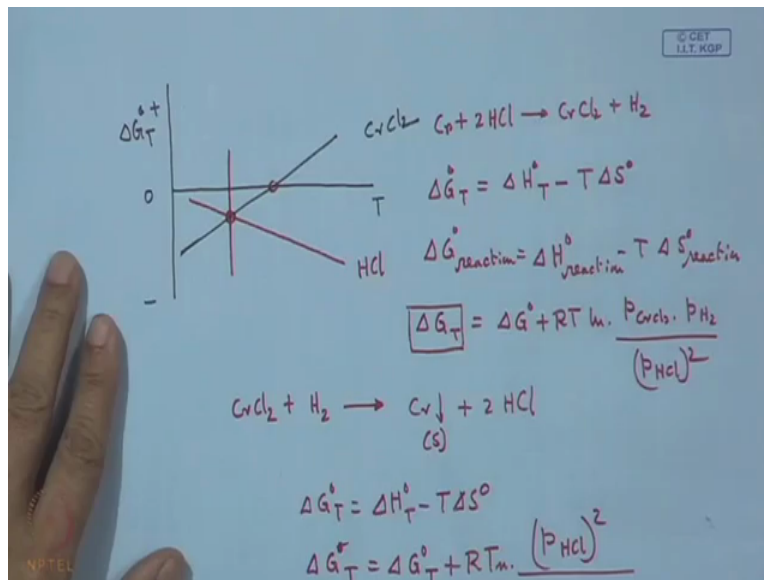 © CET
I.I.T. KGP
ΔG°T
+
0
−
T
CrCl2
HCl
Cr + 2 HCl → CrCl2 + H2
ΔG°T = ΔH°T − TΔS°
ΔG°reaction = ΔH°reaction − T ΔS°reaction
ΔGT = ΔG° + RT ln. PCrCl2 . PH2 / (PHCl)2
CrCl2 + H2 → Cr↓ + 2 HCl
(S)
ΔG°T = ΔH°T − TΔS°
ΔG°T = ΔG°T + RT ln. (PHCl)2
NPTEL